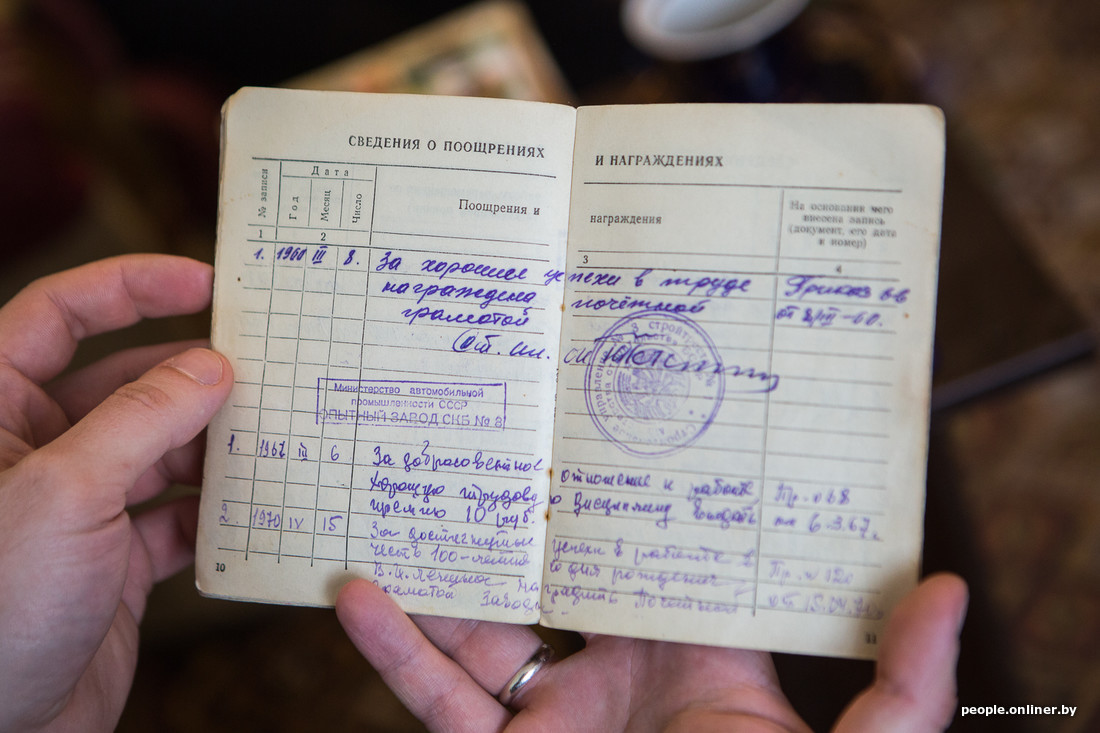 СВЕДЕНИЯ О ПООЩРЕНИЯХ И НАГРАЖДЕНИЯХ
№ записи
Дата
Год Месяц Число
Поощрения и награждения
На основании чего
внесена запись
(документ, его дата
и номер)
1 2 3 4
1. 1960 III 8. За хорошие успехи в труде Приказ
награждена почётной от 8/III-60.
грамотой
Министерство автомобильной
промышленности СССР
ОПЫТНЫЙ ЗАВОД СКБ № 3
1. 1967 III 6 За добросовестное отношение к работе, Пр. 068
хорошую трудовую дисциплину выдать 6.3.67г.
премию 10 руб.
2. 1970 IV 15 За достигнутые успехи в работе в Пр. № 120
честь 100-летия со дня рождения от 15.04.70г.
В.И. Ленина наградить Почётной
грамотой завода
10
11
people.onliner.by